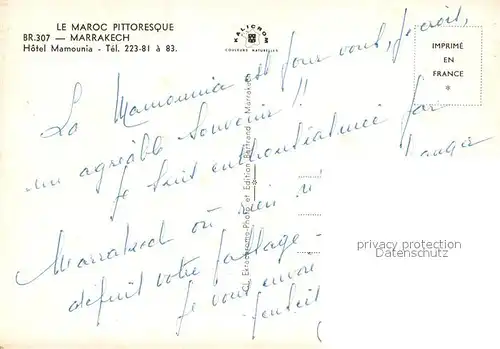 LE MAROC PITTORESQUE
BR.307 — MARRAKECH
Hôtel Mamounia - Tél. 223-81 à 83.
KALICROM
COULEURS NATURELLES
IMPRIMÉ
EN
FRANCE
*
La Mamounia est pour vous, je crois,
un agréable souvenir !!
Je suis enthousiasmée par
Marrakech où rien n'
définit votre
Je vous envoie
Photo et Edition Bertrand - Marrakech
privacy protection
Datenschutz